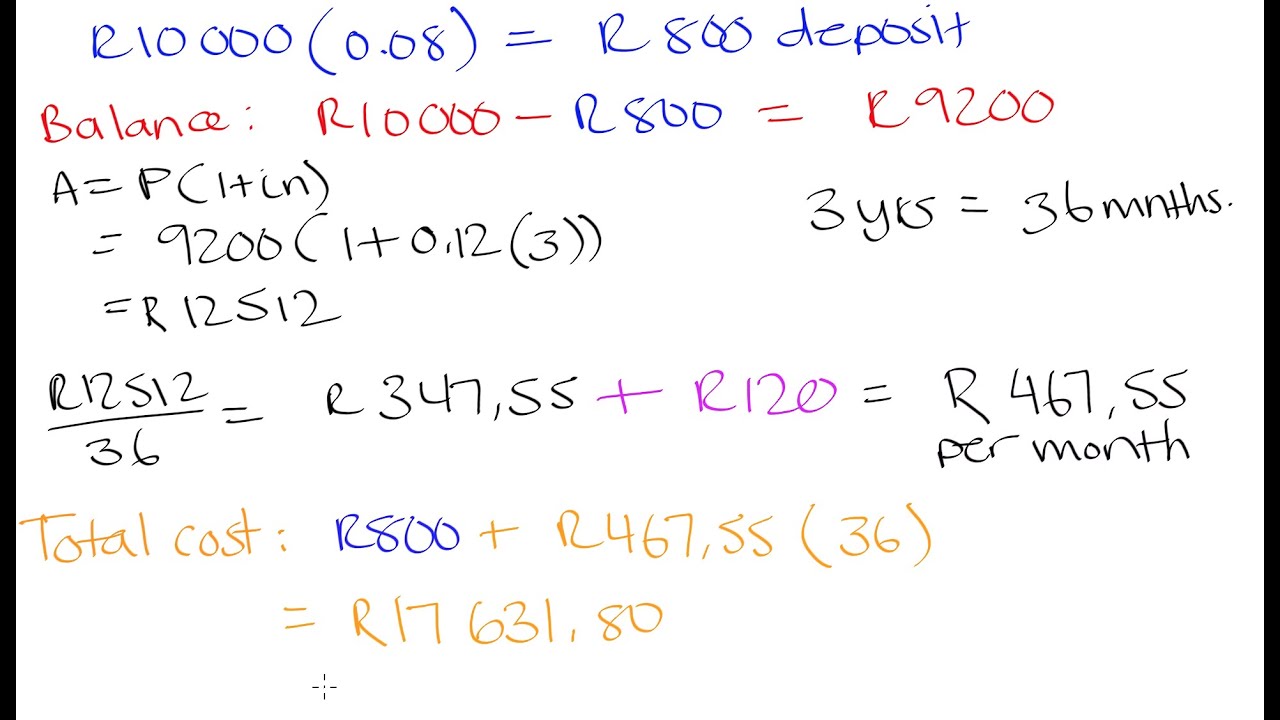 R10 000(0.08) = R 800 deposit
Balance: R10000 - R800 = R9200
A = P(1+in)
= 9200(1+0,12(3))
3 yrs = 36 mnths.
= R 12512
R12512 / 36 = R 347,55 + R120 = R 467,55
per month
Total cost: R800 + R467,55 (36)
= R17 631,80